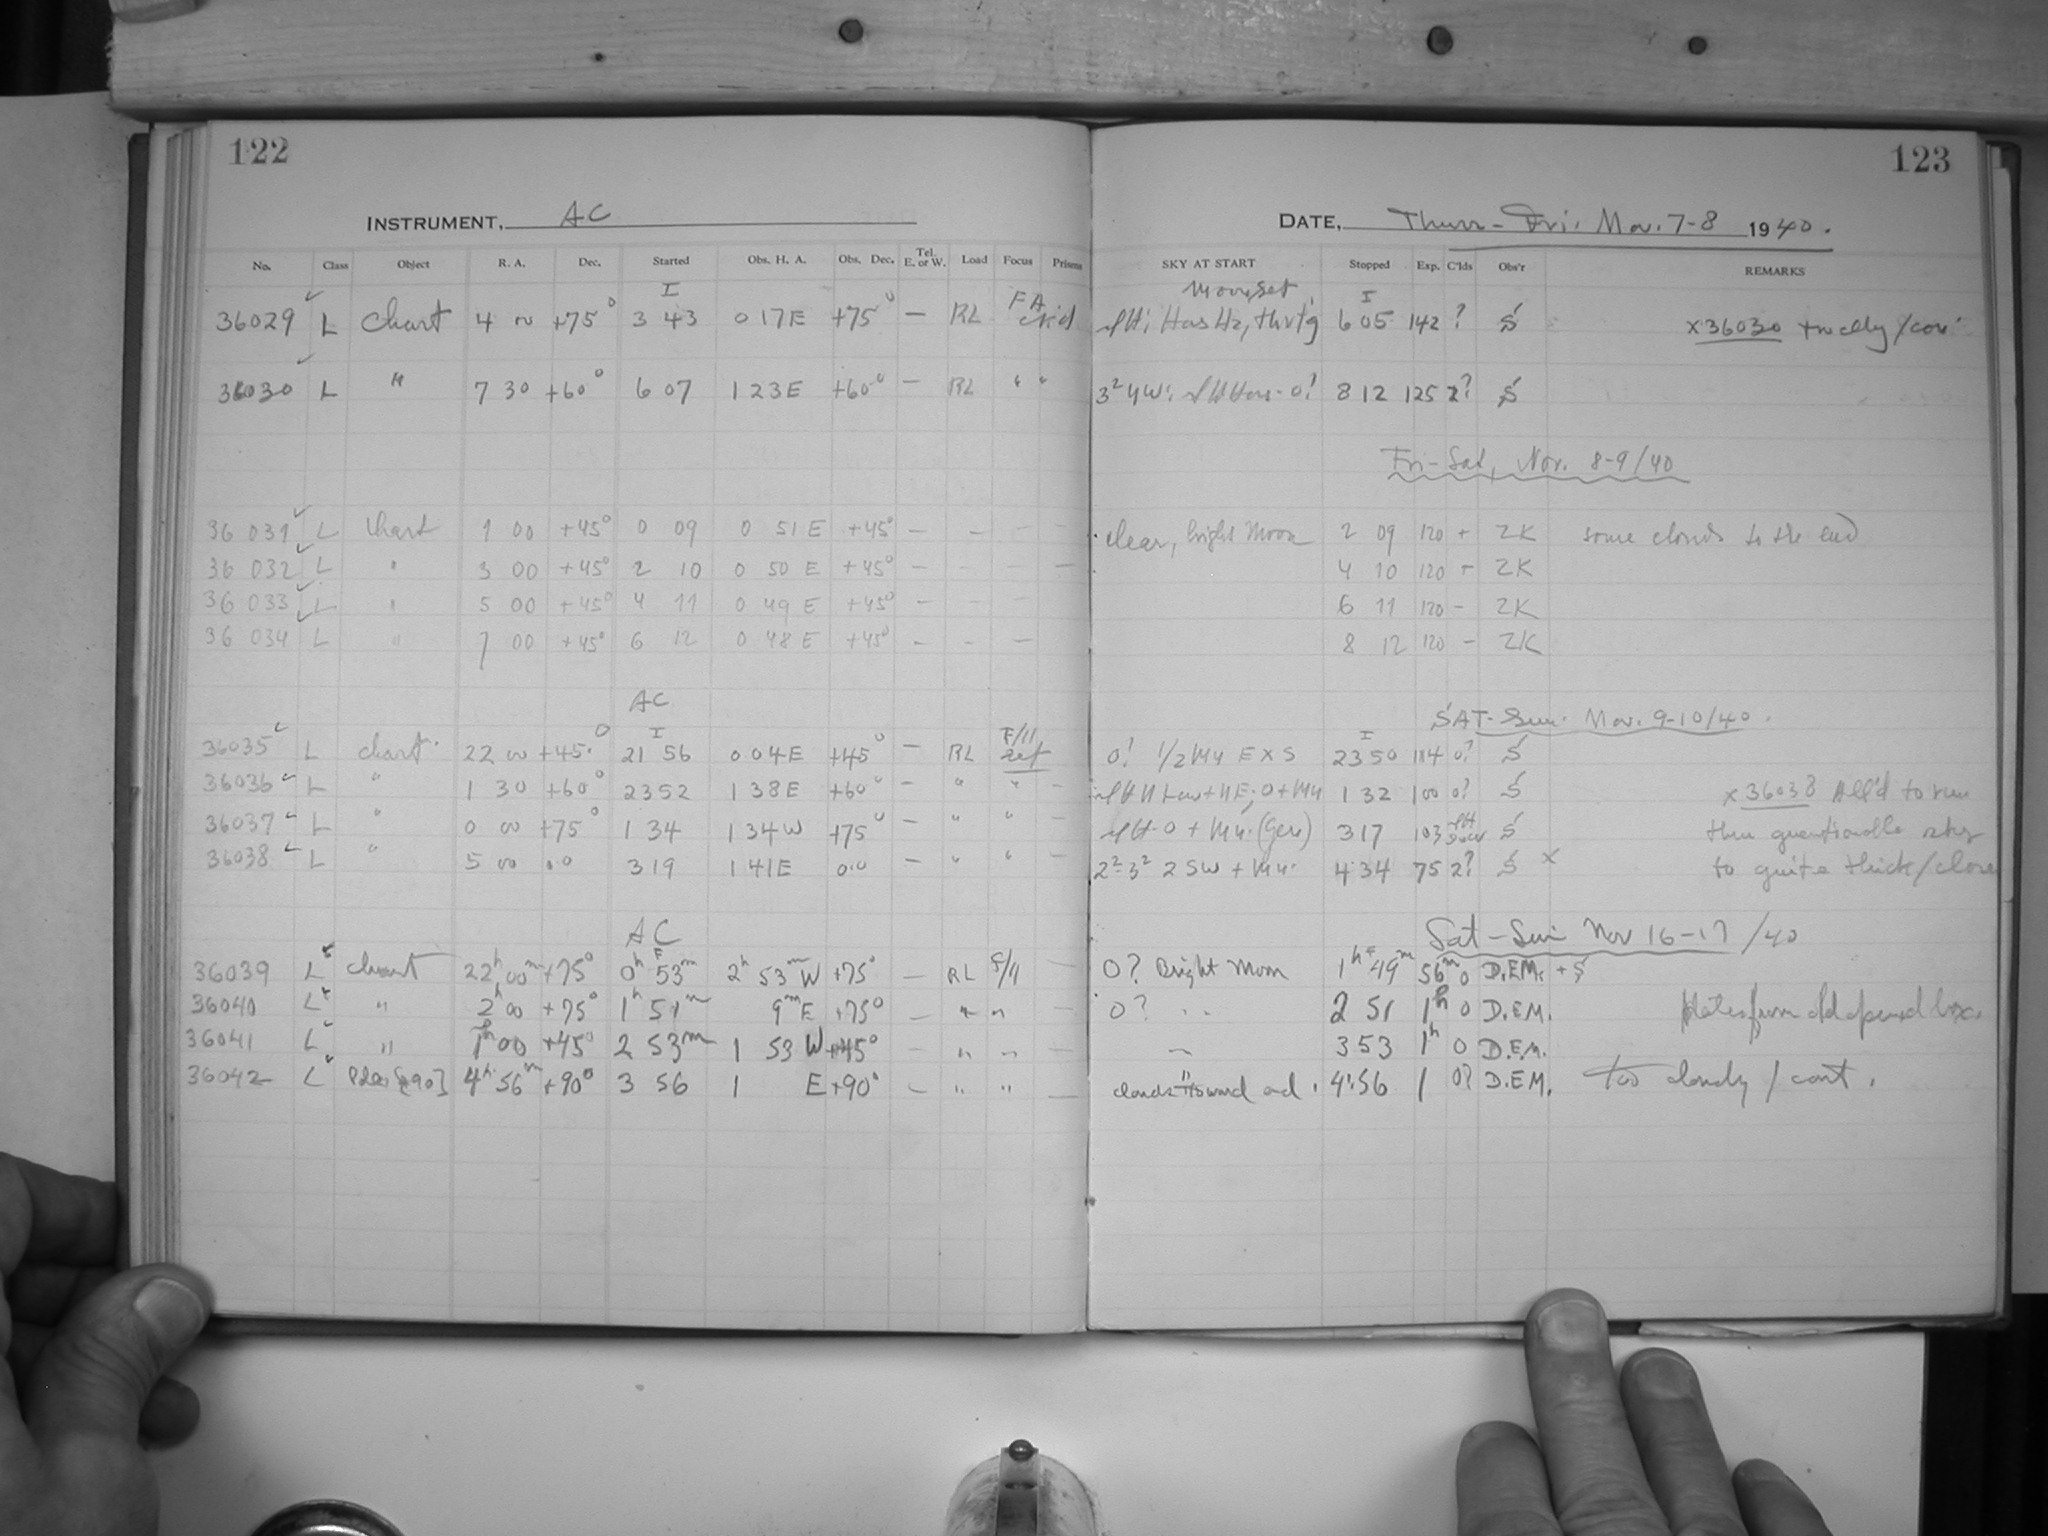 122
123
INSTRUMENT, AC
DATE, Thurs-Fri. Nov. 7-8 1940.
No. Class Object R. A. Dec. Started Obs. H. A. Obs. Dec. Tel. E. or W. Load Focus Prisms SKY AT START Stopped Exp. C'lds Obs'r REMARKS
36029 L Chart 4 00 +75° 3 43 0 17E +75° — RL Moonset, 6 05 142 ? S x36030 too cldy/con
36030 L " 7 30 +60° 6 07 1 23E +60° — RL " " 8 12 125 2? S
Fri-Sat, Nov. 8-9/40
36 031 L Chart 1 00 +45° 0 09 0 51 E +45° — — — clear, bright Moon 2 09 120 + ZK some clouds to the end
36 032 L " 3 00 +45° 2 10 0 50 E +45° — — — — 4 10 120 + ZK
36 033 L " 5 00 +45° 4 11 0 49 E +45° — — — 6 11 120 - ZK
36 034 L " 7 00 +45° 6 12 0 48 E +45° — — — 8 12 120 - ZK
AC
SAT-Sun. Nov. 9-10/40.
36035 L chart 22 00 +45.° 21 56 0 04E +45° — RL F/11 0! 1/2 E x S 23 50 114 0? S
36036 L " 1 30 +60° 23 52 1 38E +60° — " " — 1 32 100 0? S x 36038 All'd to run
36037 L " 0 00 +75° 1 34 1 34W +75° — " " 3 17 103 S thru questionable sky
36038 L " 5 00 0.0 3 19 1 41E 0.0 — " " — 4 34 75 2? S x to quite thick/close
AC
Sat-Sun Nov 16-17/40
36039 L chart 22h 00m +75° 0h 53m 2h 53m W +75° — RL F/11 0? Bright Moon 1h 49m 56m 0 D.E.M. + S
36040 L " 2 00 +75° 1h 51m 9m E +75° — " " 0? " " 2 51 1h 0 D.E.M. Plates from old opened box.
36041 L " 1h 00 +45° 2 53m 1 53 W +45° — " " — 3 53 1h 0 D.E.M.
36042 L 4h 56m +90° 3 56 1 E +90° — " " — clouds toward end. 4:56 1 0? D.E.M. Too cloudy / cont.